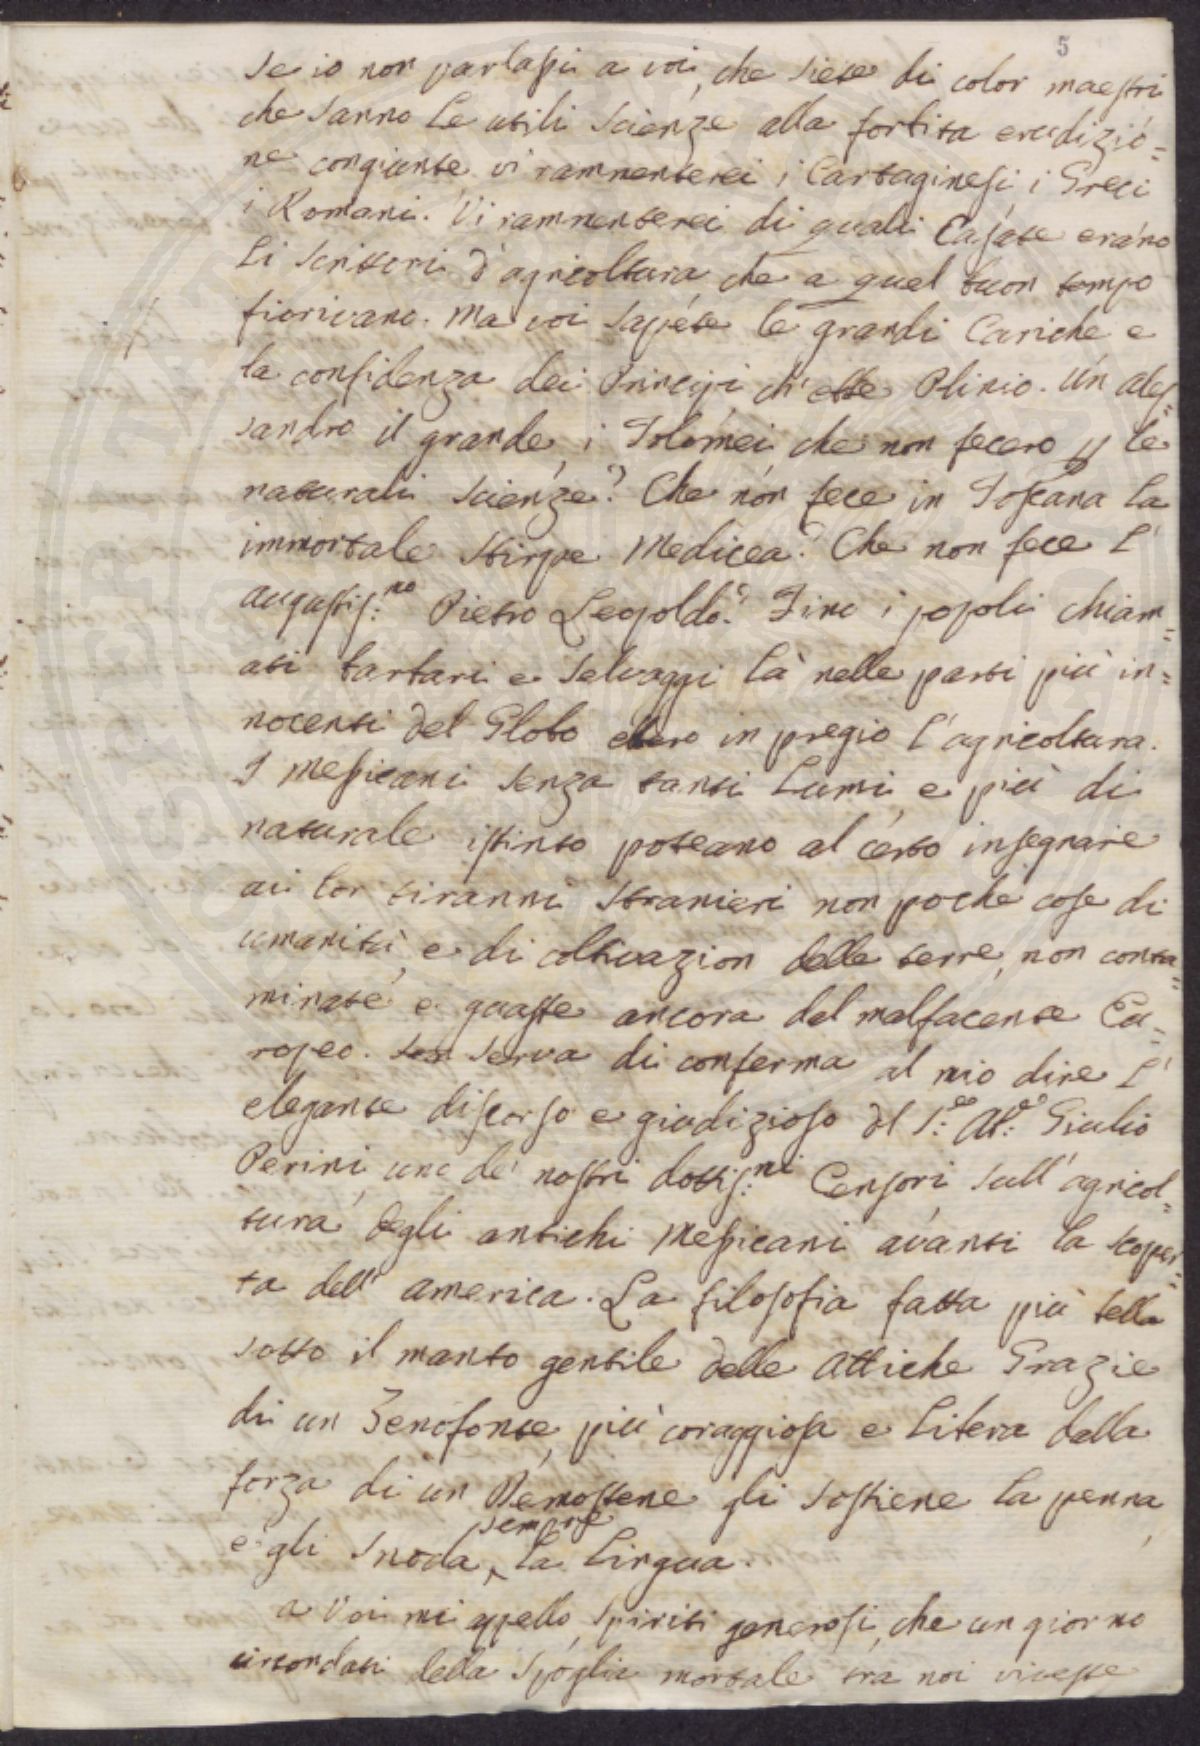 5
se io non parlassi a voi, che siete di color maestri
che sanno le utili scienze alla forbita erudizio=
ne congiunte vi rammenterei i Cartaginesi, i Greci
i Romani. Vi rammenterei di quali Casate erano
li scrittori d'agricoltura che a quel buon tempo
fiorivano. Ma voi sapete le grandi Cariche e
la confidenza dei Principi ch'ebbe Plinio. Un ales=
sandro il grande, i Tolomei che non fecero p le
naturali scienze? Che non fece in Toscana la
immortale stirpe Medicea? Che non fece l'
augustiss:mo Pietro Leopoldo? Fino i popoli chiam=
ati barbari e selvaggi là nelle parti più in=
nocenti del Globo ebbero in pregio l'agricoltura.
I Messicani senza tanti lumi, e più di
naturale istinto poteano al certo insegnare
ai lor tiranni stranieri non poche cose di
umanità, e di coltivazion delle terre, non conta=
minate e guaste ancora dal malfacente Eu=
ropeo. serva di conferma al mio dire l'
elegante discorso e giudizioso del S:re Ab:e Giulio
Perini, uno de' nostri dottiss:mi Censori sull'agricol=
tura degli antichi Messicani avanti la scoper=
ta dell'america. La filosofia fatta più bella
sotto il manto gentile delle attiche Grazie
di un Zenofonte, più coraggiosa e libera dalla
forza di un Demostene gli sostiene la penna,
e gli snoda sempre la lingua.
a Voi mi appello, spiriti generosi, che un giorno
circondati della spoglia mortale tra noi viveste